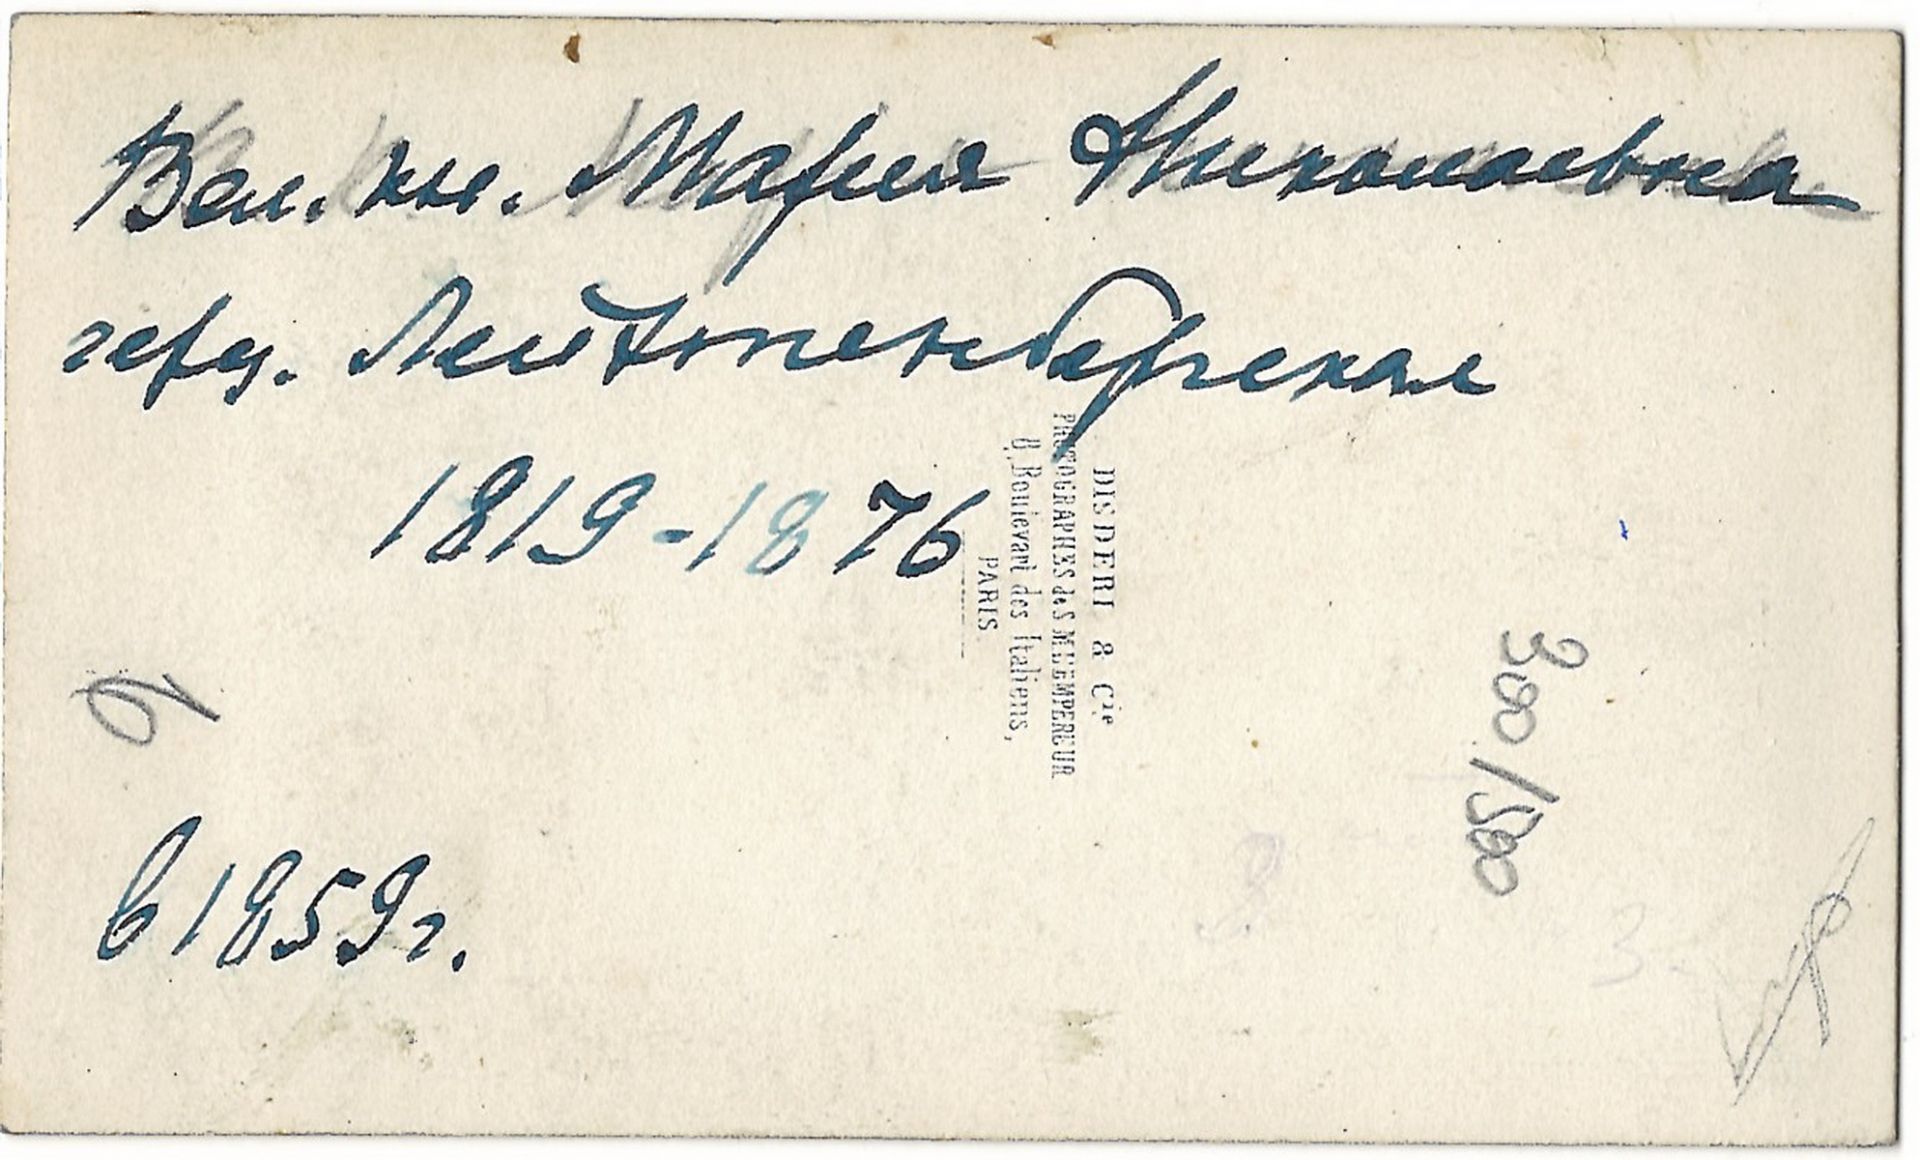 Вел. кн. Мария Николаевна
герц. Лейхтенбергская
1819-1876
в 1859 г.
DISDERI & Cie
PHOTOGRAPHES de S.M.L'EMPEREUR
8, Boulevart des Italiens,
PARIS
300/500